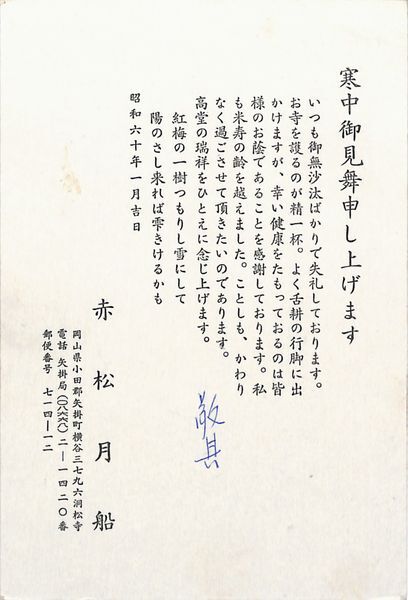 寒中御見舞申し上げます
いつも御無沙汰ばかりで失礼しております。
お寺を護るのが精一杯。よく舌耕の行脚に出
かけますが、幸い健康をたもっておるのは皆
様のお蔭であることを感謝しております。私
も米寿の齢を越えました。ことしも、かわり
なく過ごさせて頂きたいのであります。
高堂の瑞祥をひとえに念じ上げます。
敬具
紅梅の一樹つもりし雪にして
陽のさし来れば雫きけるかも
昭和六十年一月吉日
赤松月船
岡山県小田郡矢掛町横谷三七九六洞松寺
電話 矢掛局(〇八六六八)二―一四二〇番
郵便番号 七一四―一二